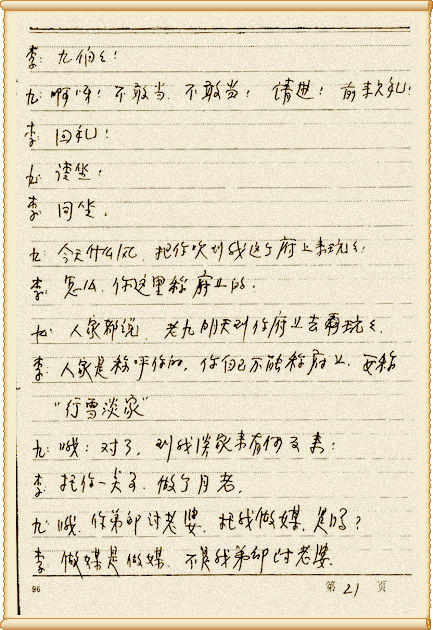 李: 九伯々!
九: 啊呀! 不敢当、不敢当! 请进! 前来礼!
李: 回礼!
九: 请坐!
李: 同坐。
九: 今天什么风、把你吹到我这个府上来玩々.
李: 怎么、你这里称府上的.
九: 人家都说、老九明天到你府上去再玩々.
李: 人家是称呼你的, 你自己不能称府上、要称
“行雪淡家”
九: 哦! 对了, 到我淡家来有何交来!
李: 把你一美了、做个月老。
九: 哦、你弟却讨老婆、把我做媒、是吗?
李 做媒是做媒、不是我弟却讨老婆.
96 第21页